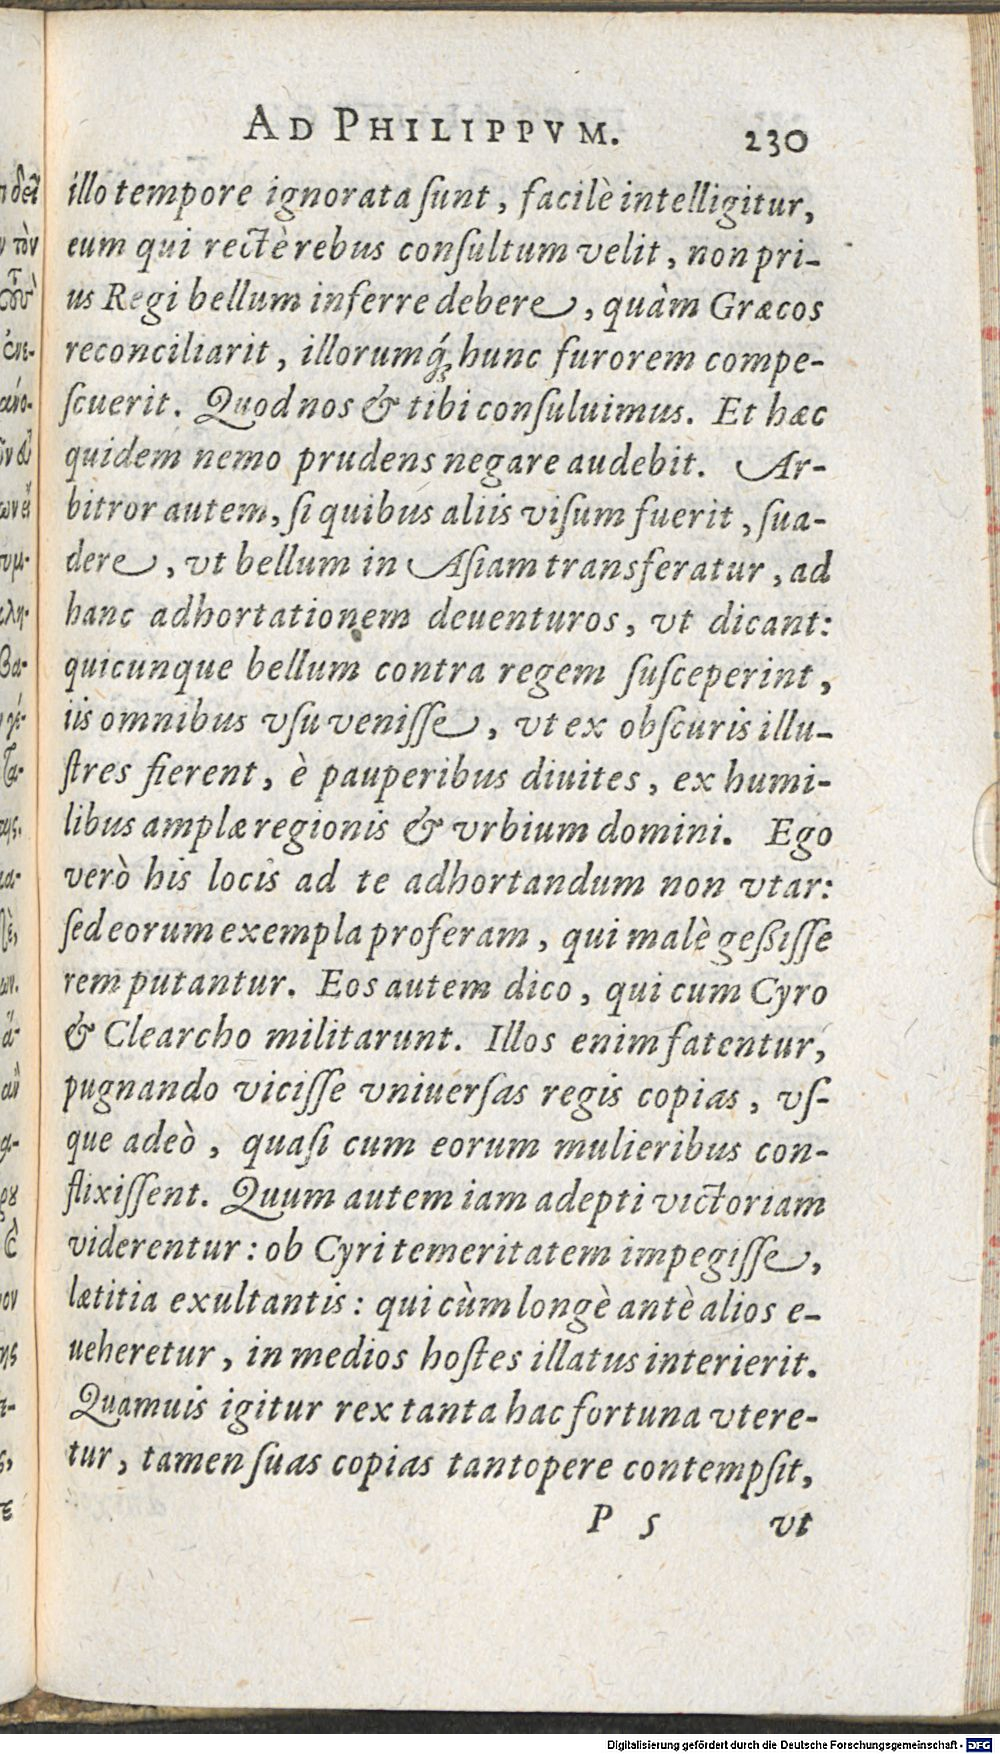 AD PHILIPPVM. 230
illo tempore ignorata ſunt, facilè intelligitur,
eum qui rectè rebus conſultum velit, non pri-
us Regi bellum inferre debere, quàm Græcos
reconciliarit, illorumq́; hunc furorem compe-
ſcuerit. Quod nos & tibi conſuluimus. Et hæc
quidem nemo prudens negare audebit. Ar-
bitror autem, ſi quibus aliis viſum fuerit, ſua-
dere, vt bellum in Aſiam transferatur, ad
hanc adhortationem deuenturos, vt dicant:
quicunque bellum contra regem ſuſceperint,
iis omnibus vſu veniſſe, vt ex obſcuris illu-
ſtres fierent, è pauperibus diuites, ex humi-
libus amplæ regionis & vrbium domini. Ego
verò his locis ad te adhortandum non vtar:
ſed eorum exempla proferam, qui malè geßiſſe
rem putantur. Eos autem dico, qui cum Cyro
& Clearcho militarunt. Illos enim fatentur,
pugnando viciſſe vniuerſas regis copias, vſ-
que adeò, quaſi cum eorum mulieribus con-
flixiſſent. Quum autem iam adepti victoriam
viderentur: ob Cyri temeritatem impegiſſe,
lætitia exultantis: qui cùm longè antè alios e-
ueheretur, in medios hoſtes illatus interierit.
Quamuis igitur rex tanta hac fortuna vtere-
tur, tamen ſuas copias tantopere contempſit,
P 5 vt
Digitalisierung gefördert durch die Deutsche Forschungsgemeinschaft - DFG